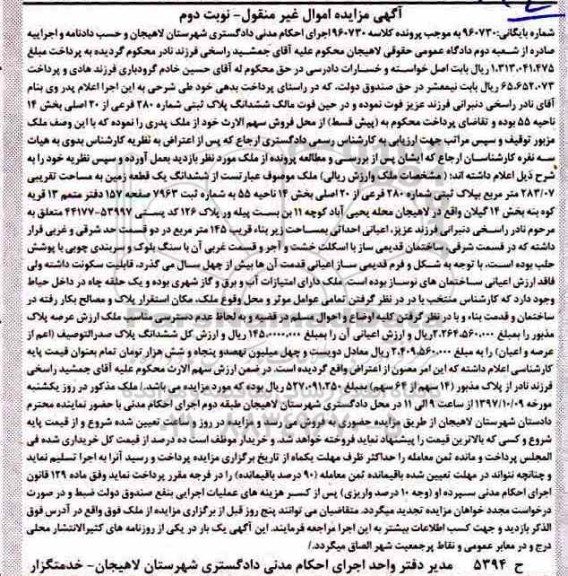 آگهی مزایده اموال غیر منقول- نوبت دوم
شماره بایگانی: ۹۶۰۷۳۰ به موجب پرونده کلاسه ۹۶۰۷۳۰ اجرای احکام مدنی دادگستری شهرستان لاهیجان و حسب دادنامه و اجراییه
صادره از شعبه دوم دادگاه عمومی حقوقی لاهیجان محکوم علیه آقای جمشید راسخی فرزند نادر محکوم گردیده به پرداخت مبلغ
۱.۳۱۳.۰۴۱.۴۷۵ ریال بابت اصل خواسته و خسارات دادرسی در حق محکوم له آقای حسین خادم گرودباری فرزند هادی و پرداخت
۶۵.۶۵۲.۰۷۳ ریال بابت نیمعشر در حق صندوق دولت، که در راستای پرداخت بدهی خود طی شرحی به این اجرا اعلام پدر وی بنام
آقای نادر راسخی دنبرانی فرزند عزیز فوت نموده و در حین فوت مالک ششدانگ پلاک ثبتی شماره ۲۸۰ فرعی از ۲۰ اصلی بخش ۱۴
ناحیه ۵۵ بوده و تقاضای پرداخت محکوم به (پیش قسط) از محل فروش سهم الارث خود از ملک پدری را نموده که با این وصف ملک
مزبور توقیف و سپس مراتب جهت ارزیابی به کارشناس رسمی دادگستری ارجاع که پس از اعتراض به نظریه کارشناس بدوی به هیات
سه نفره کارشناسان ارجاع که ایشان پس از بررسی و مطالعه پرونده از ملک مورد نظر بازدید بعمل آورده و سپس نظریه خود را به
شرح ذیل اعلام داشته اند: ( مشخصات ملک وارزش ریالی) ملک موصوف عبارتست از ششدانگ یک قطعه زمین به مساحت تقریبی
۲۸۳/۰۷ متر مربع بپلاک ثبتی شماره ۲۸۰ فرعی از ۲۰ اصلی بخش ۱۴ ناحیه ۵۵ به شماره ثبت ۷۹۶۳ صفحه ۱۵۷ دفتر متمم ۱۳ قریه
کوه بنه بخش ۱۴ گیلان واقع در لاهیجان محله یحیی آباد کوچه ۱۱ بن بست پیله ور پلاک ۱۲۶ کد پستی ۵۳۹۹۷-۴۴۱۷۷ متعلق به
مرحوم نادر راسخی دنبرانی فرزند عزیز، اعیانی احداثی بمساحت زیر بناء قریب ۱۴۵ متر مربع در دو قسمت حد شرقی و غربی قرار
داشته که در قسمت شرقی، ساختمان قدیمی ساز با اسکلت خشت و آجر و قسمت غربی آن با سنگ بلوک و سربندی چوبی با پوشش
حلب بوده است، با توجه به شکل و فرم قدیمی ساز اعیانی قدمت آن ها بیش از چهل سال می گذرد، قابلیت سکونت داشته ولی
فاقد ارزش اعیانی ساختمان های نوساز بوده است. ملک دارای امتیازات آب و برق و گاز شهری بوده و یک حلقه چاه در داخل حیاط
وجود دارد که کارشناس منتخب با در نظر گرفتن تمامی عوامل موثر و محل وقوع ملک، مکان استقرار پلاک و مصالح بکار رفته در
ساختمان و قدمت بناء و با در نظر گرفتن کلیه اوضاع و احوال مسلم در قضیه و به لحاظ عدم دسترسی مناسب ملک ارزش عرصه پلاک
مذبور را بمبلغ ۲.۲۶۴.۵۶۰.۰۰۰ ریال و ارزش اعیانی آن را بمبلغ ۱۴۵.۰۰۰.۰۰۰ ریال و ارزش کل ششدانگ پلاک صدرالتوصیف (اعم از
عرصه و اعیان) را به مبلغ ۲.۴۰۹.۵۶۰.۰۰۰ ریال معادل دویست و چهل میلیون نهصدو پنجاه و شش هزار تومان تمام بعنوان قیمت پایه
کارشناسی اعلام داشته که این امر مصون از اعتراض واقع گردیده است. در ضمن ارزش سهم الارث محکوم علیه آقای جمشید راسخی
فرزند نادر از پلاک مذبور (۱۴ سهم از ۶۴ سهم) بمبلغ ۵۲۷.۰۹۱.۲۵۰ ریال بوده که مورد مزایده می باشد.( ملک مذکور در روز یکشنبه
مورخه ۱۳۹۷/۱۰/۰۹ از ساعت ۹ الی ۱۱ در محل دادگستری شهرستان لاهیجان طبقه دوم اجرای احکام مدنی با حضور نماینده محترم
دادستان شهرستان لاهیجان از طریق مزایده حضوری به فروش می رسد، و مزایده در روز و ساعت تعیین شده شروع و از قیمت پایه
شروع و کسی که بالاترین قیمت را پیشنهاد نماید فروخته خواهد شد. و خریدار موظف است ده درصد از قیمت کل خریداری شده فی
المجلس پرداخت و مانده ثمن معامله را حداکثر ظرف مهلت یکماه از تاریخ برگزاری مزایده پرداخت و رسید آنرا به اجرا تسلیم نماید
و چنانچه نتواند در مهلت تعیین شده باقیمانده ثمن معامله (۹۰ درصد باقیمانده) را در فرجه مقرر پرداخت نماید وفق ماده ۱۲۹ قانون
اجرای احکام مدنی سپرده او (وجه ۱۰ درصد واریزی) پس از کسر هزینه های عملیات اجرایی بنفع صندوق دولت ضبط و در صورت
درخواست مجدد خواهان مزایده تجدید میگردد. متقاضیان می توانند پنج روز قبل از برگزاری مزایده از ملک فوق واقع در آدرس فوق
الذکر بازدید و جهت کسب اطلاعات بیشتر به این اجرا مراجعه فرمایند. این آگهی یک بار در یکی از روزنامه های کثیرالانتشار محلی
درج و در معابر عمومی و نقاط پرجمعیت شهر الصاق میگردد./
ح ۵۳۹۴ مدیر دفتر واحد اجرای احکام مدنی دادگستری شهرستان لاهیجان- خدمتگزار